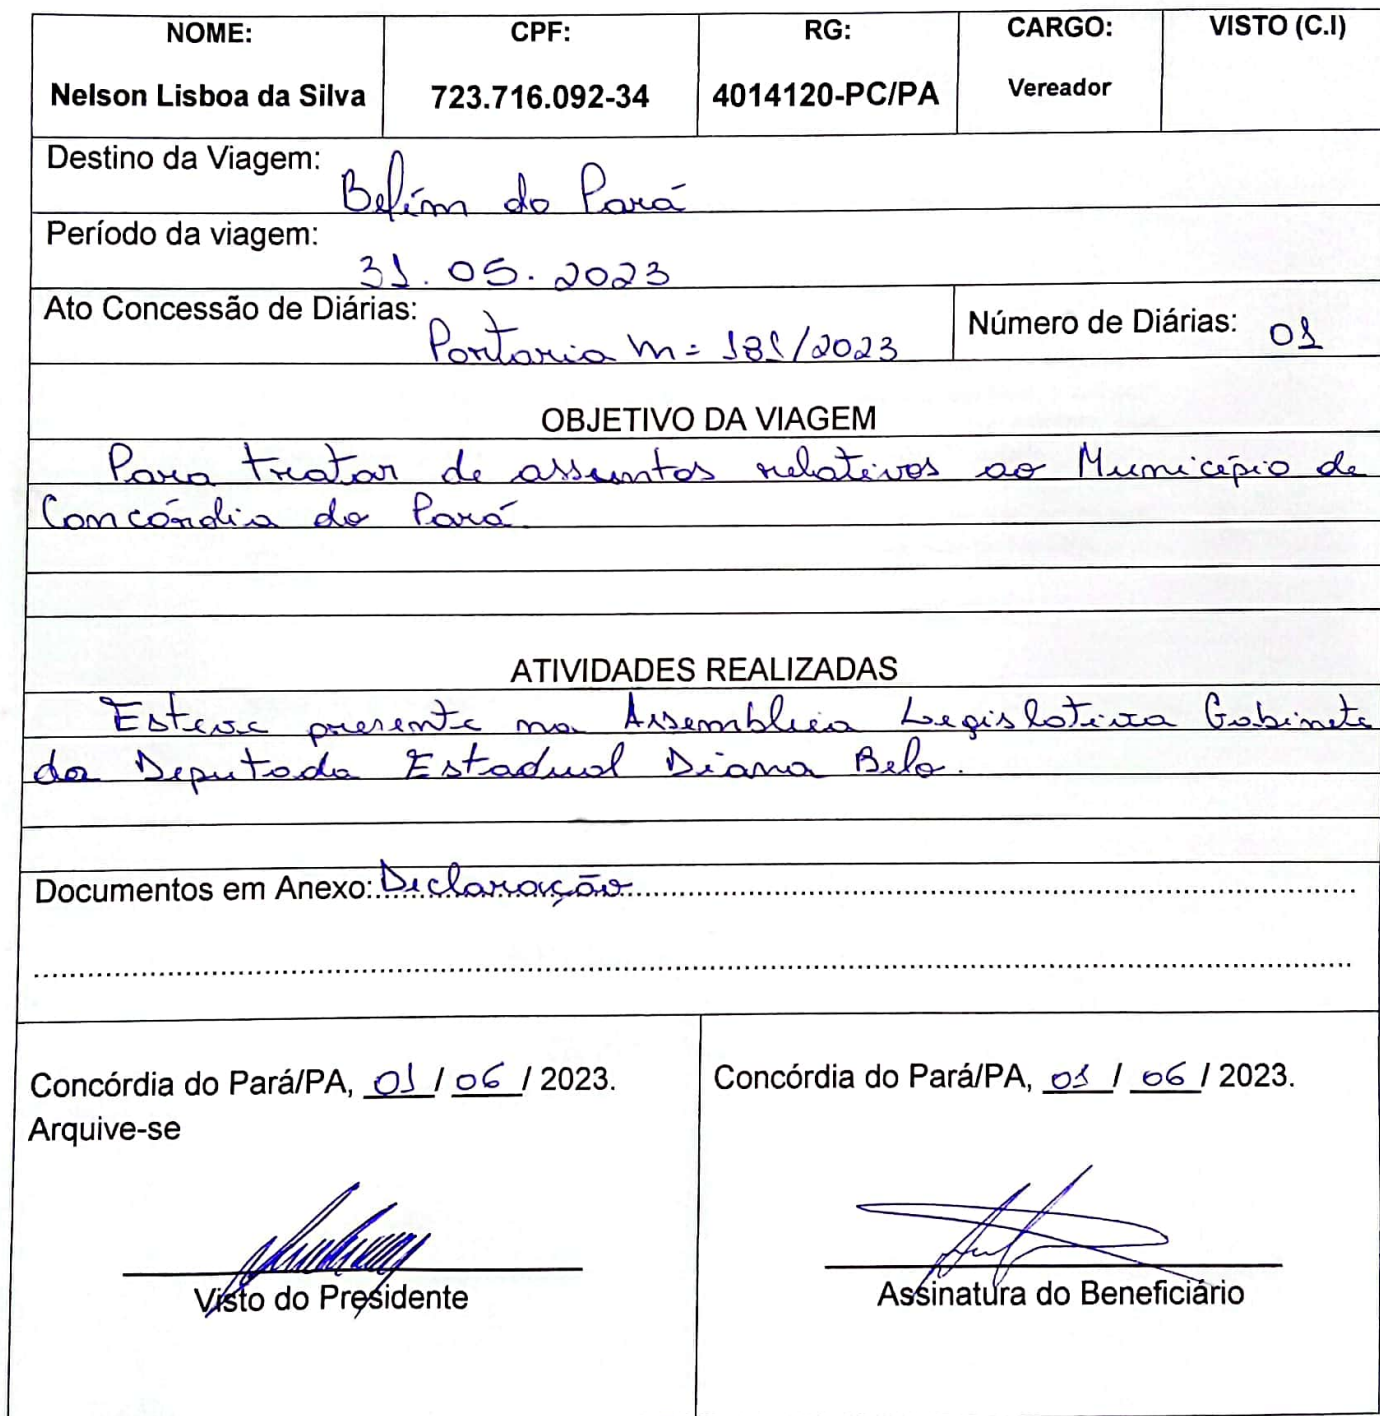 NOME: CPF: RG: CARGO: VISTO (C.I)
Nelson Lisboa da Silva 723.716.092-34 4014120-PC/PA Vereador
Destino da Viagem: Belém do Pará
Período da viagem: 31.05.2023
Ato Concessão de Diárias: Portaria n= 181/2023 Número de Diárias: 01
OBJETIVO DA VIAGEM
Para tratar de assuntos relativos ao Município de
Concórdia do Pará
ATIVIDADES REALIZADAS
Esteve presente na Assembleia Legislativa Gabinete
da Deputada Estadual Diana Belo.
Documentos em Anexo: Declaração
Concórdia do Pará/PA, 01 / 06 / 2023. Concórdia do Pará/PA, 01 / 06 / 2023.
Arquive-se
Visto do Presidente Assinatura do Beneficiário